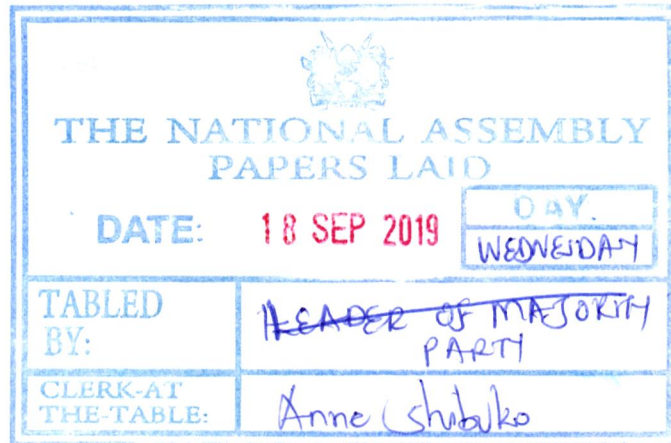 THE NATIONAL ASSEMBLY
PAPERS LAID
DATE: 18 SEP 2019
DAY.
WEDNESDAY
TABLED BY:
LEADER OF MAJORITY
PARTY
CLERK-AT
THE-TABLE:
Anne Shibuko